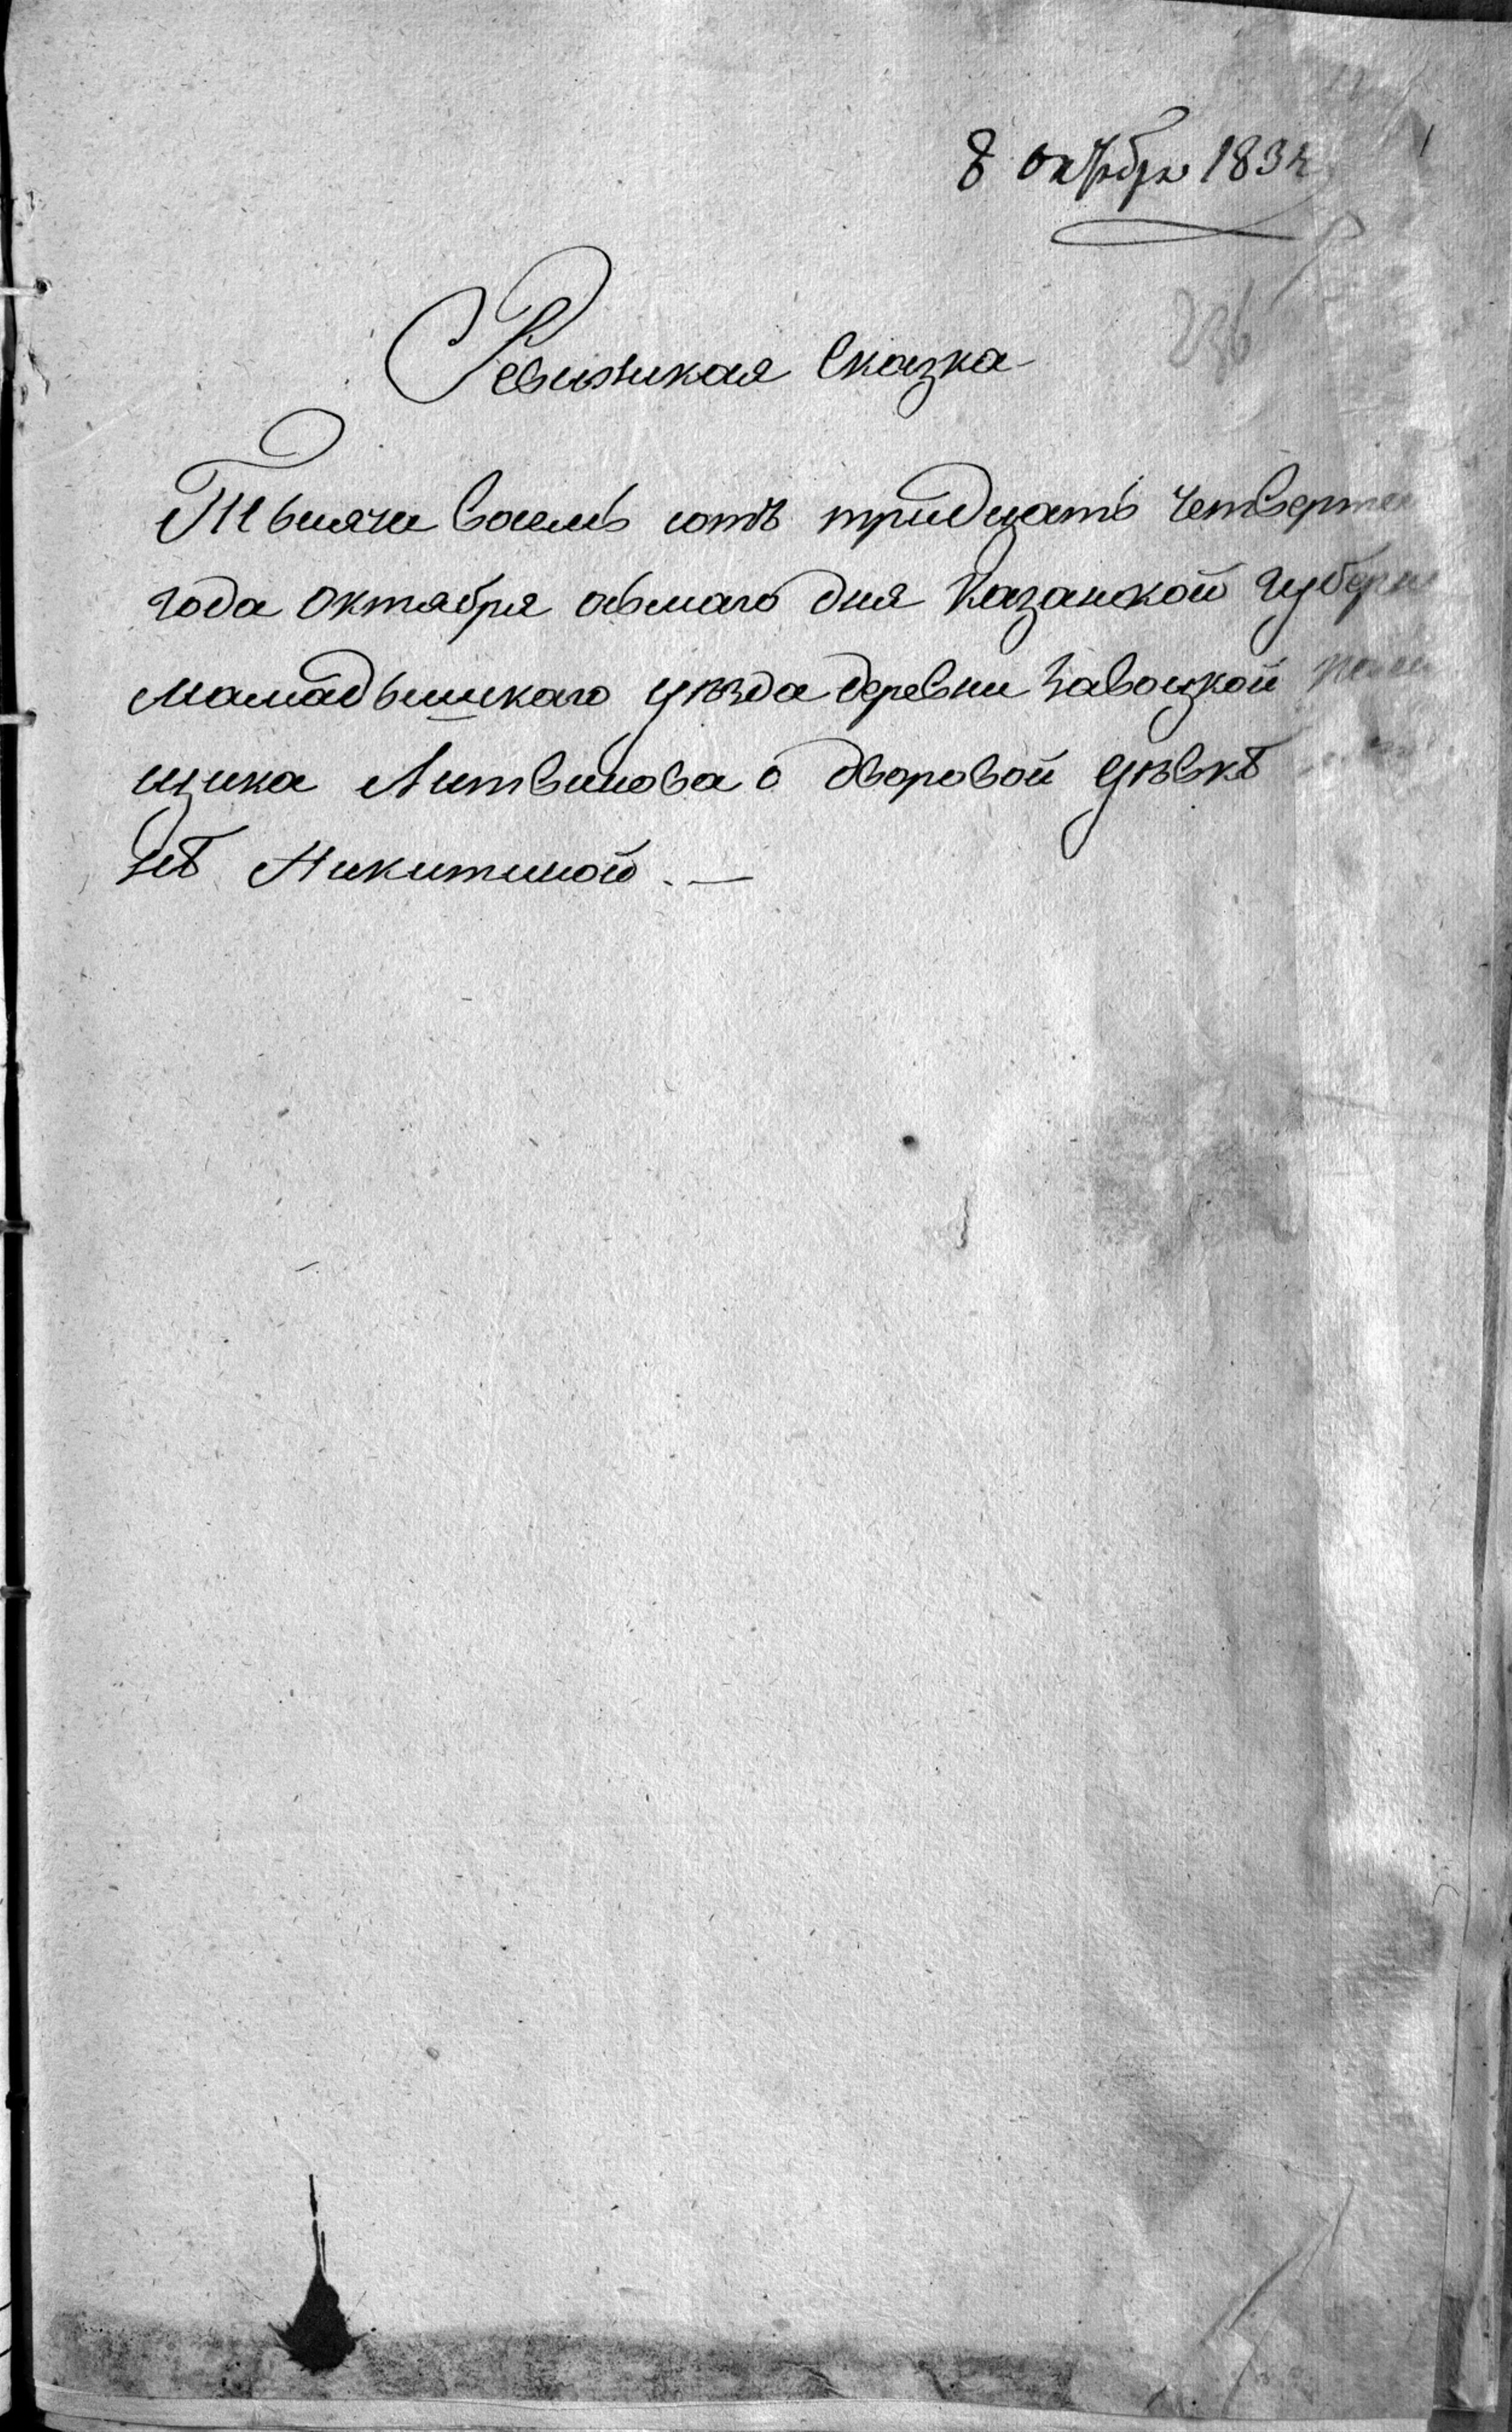 8 октября 1834
236
Ревизская Сказка
Тысяча восемь сотъ тридцать четвертаго
года Октября осьмаго дня Казанской Губернии
Мамадышскаго уѣзда деревни Завоцкой помѣ
щика Литвинова о дворовой дѣвкѣ
нѣ Никитиной. —